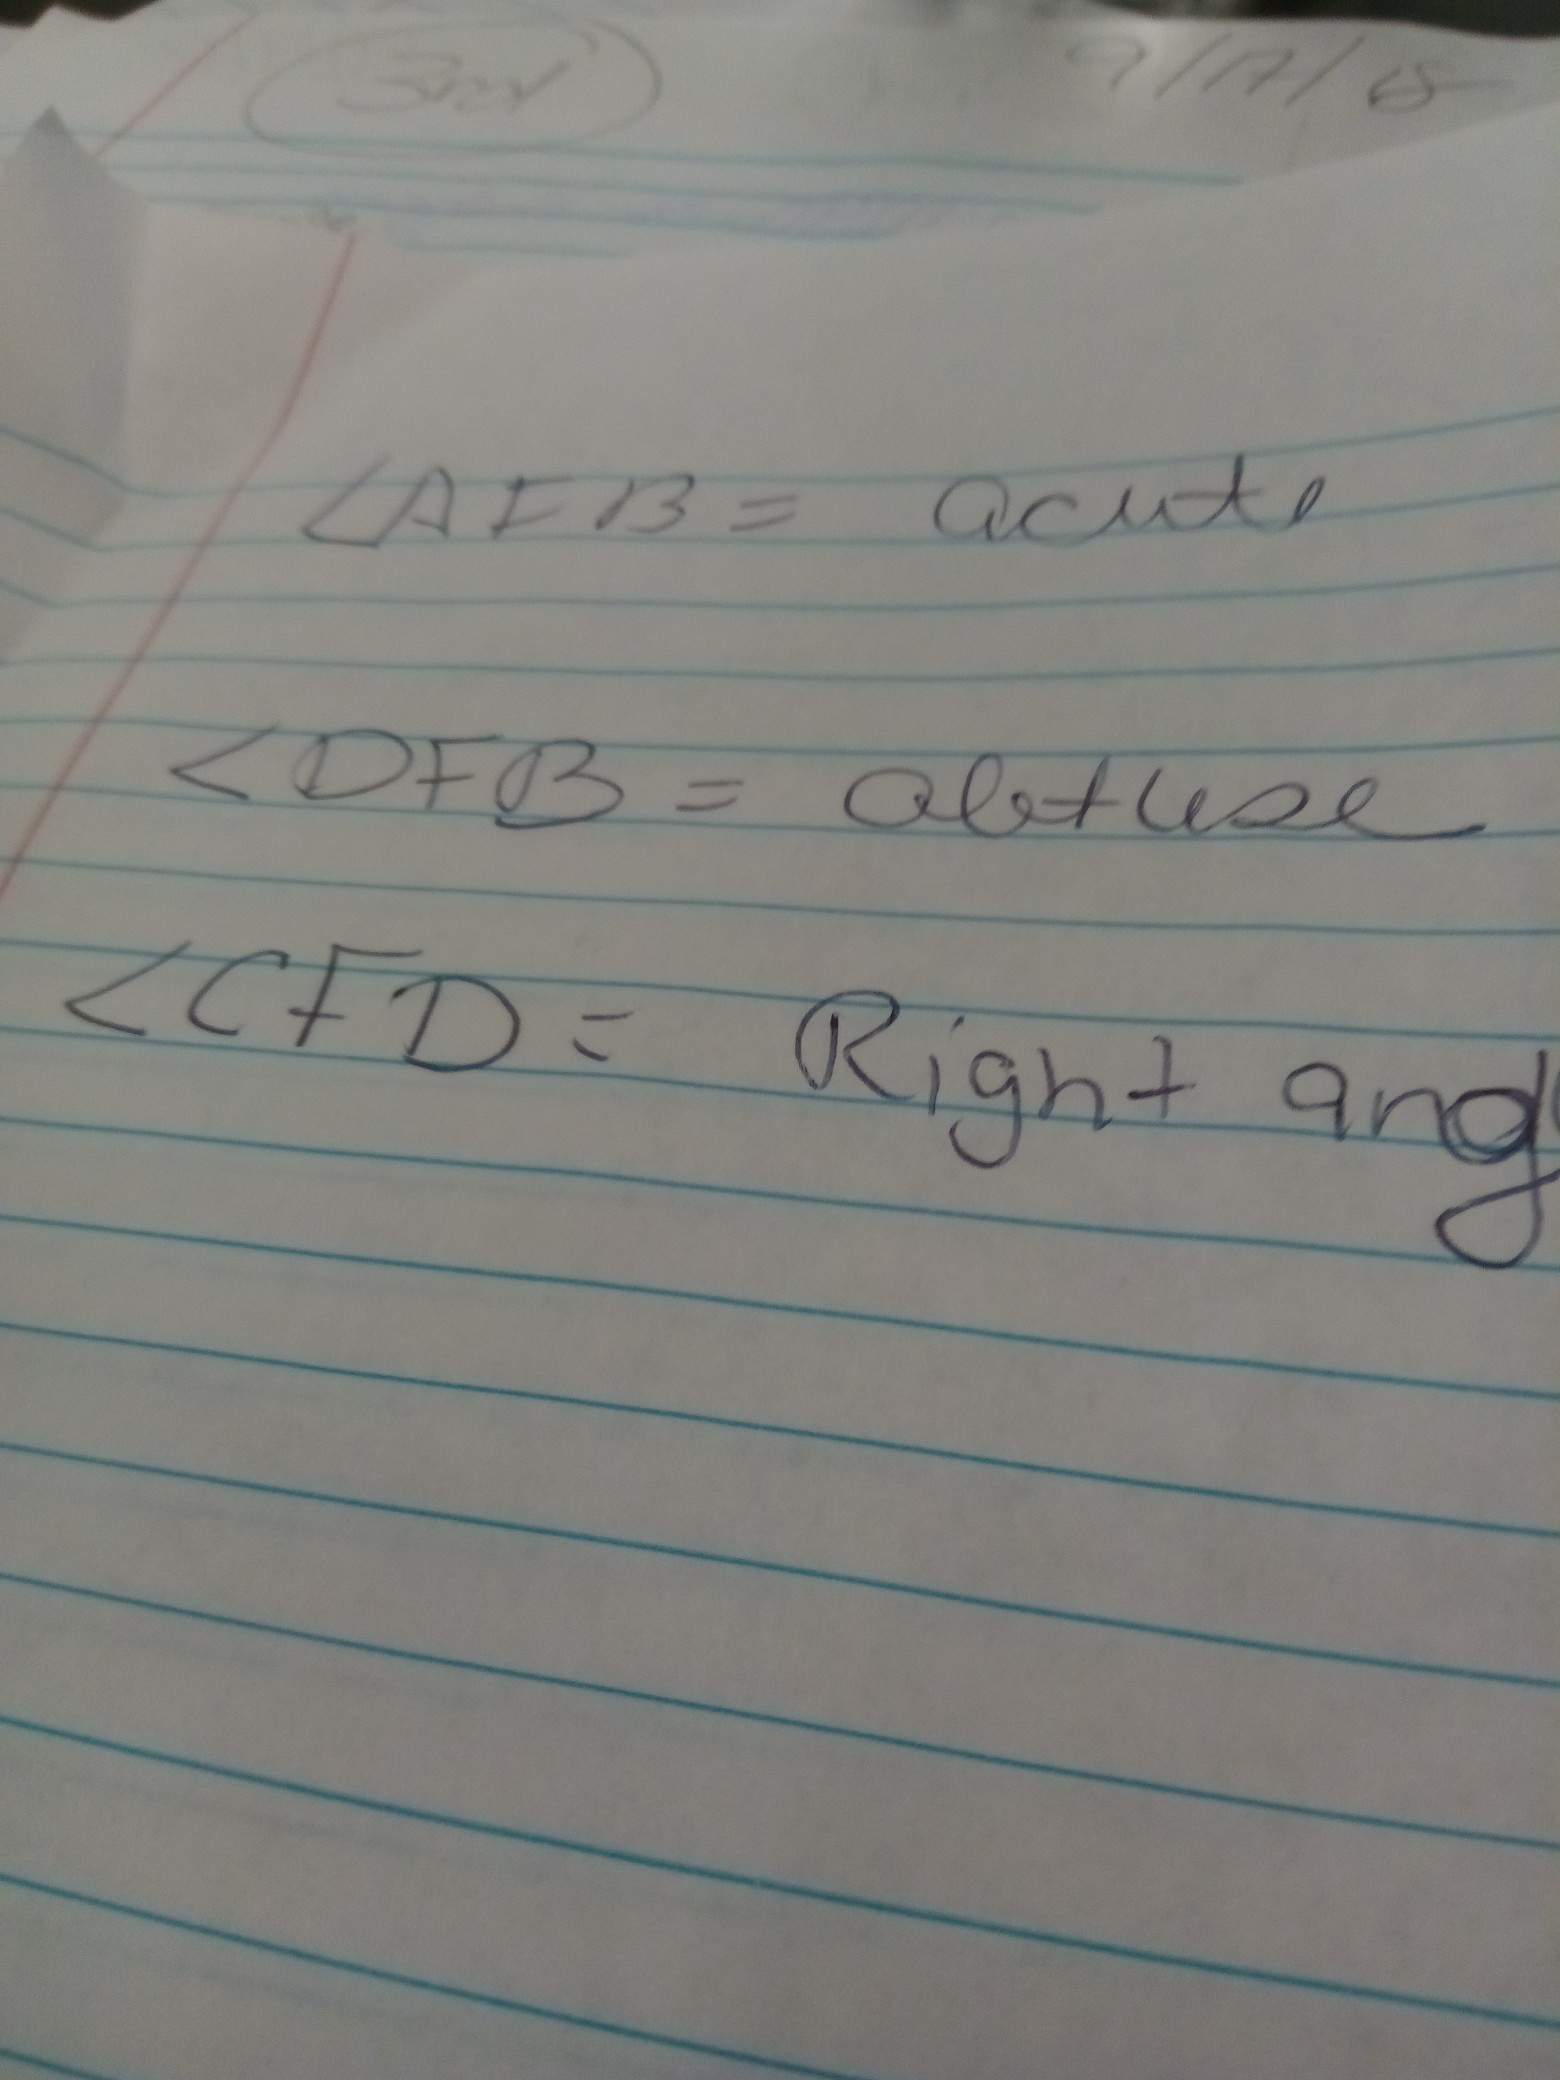 3rd 9/17/18
<AFB = acute
<DFB = obtuse
<CFD = Right angl